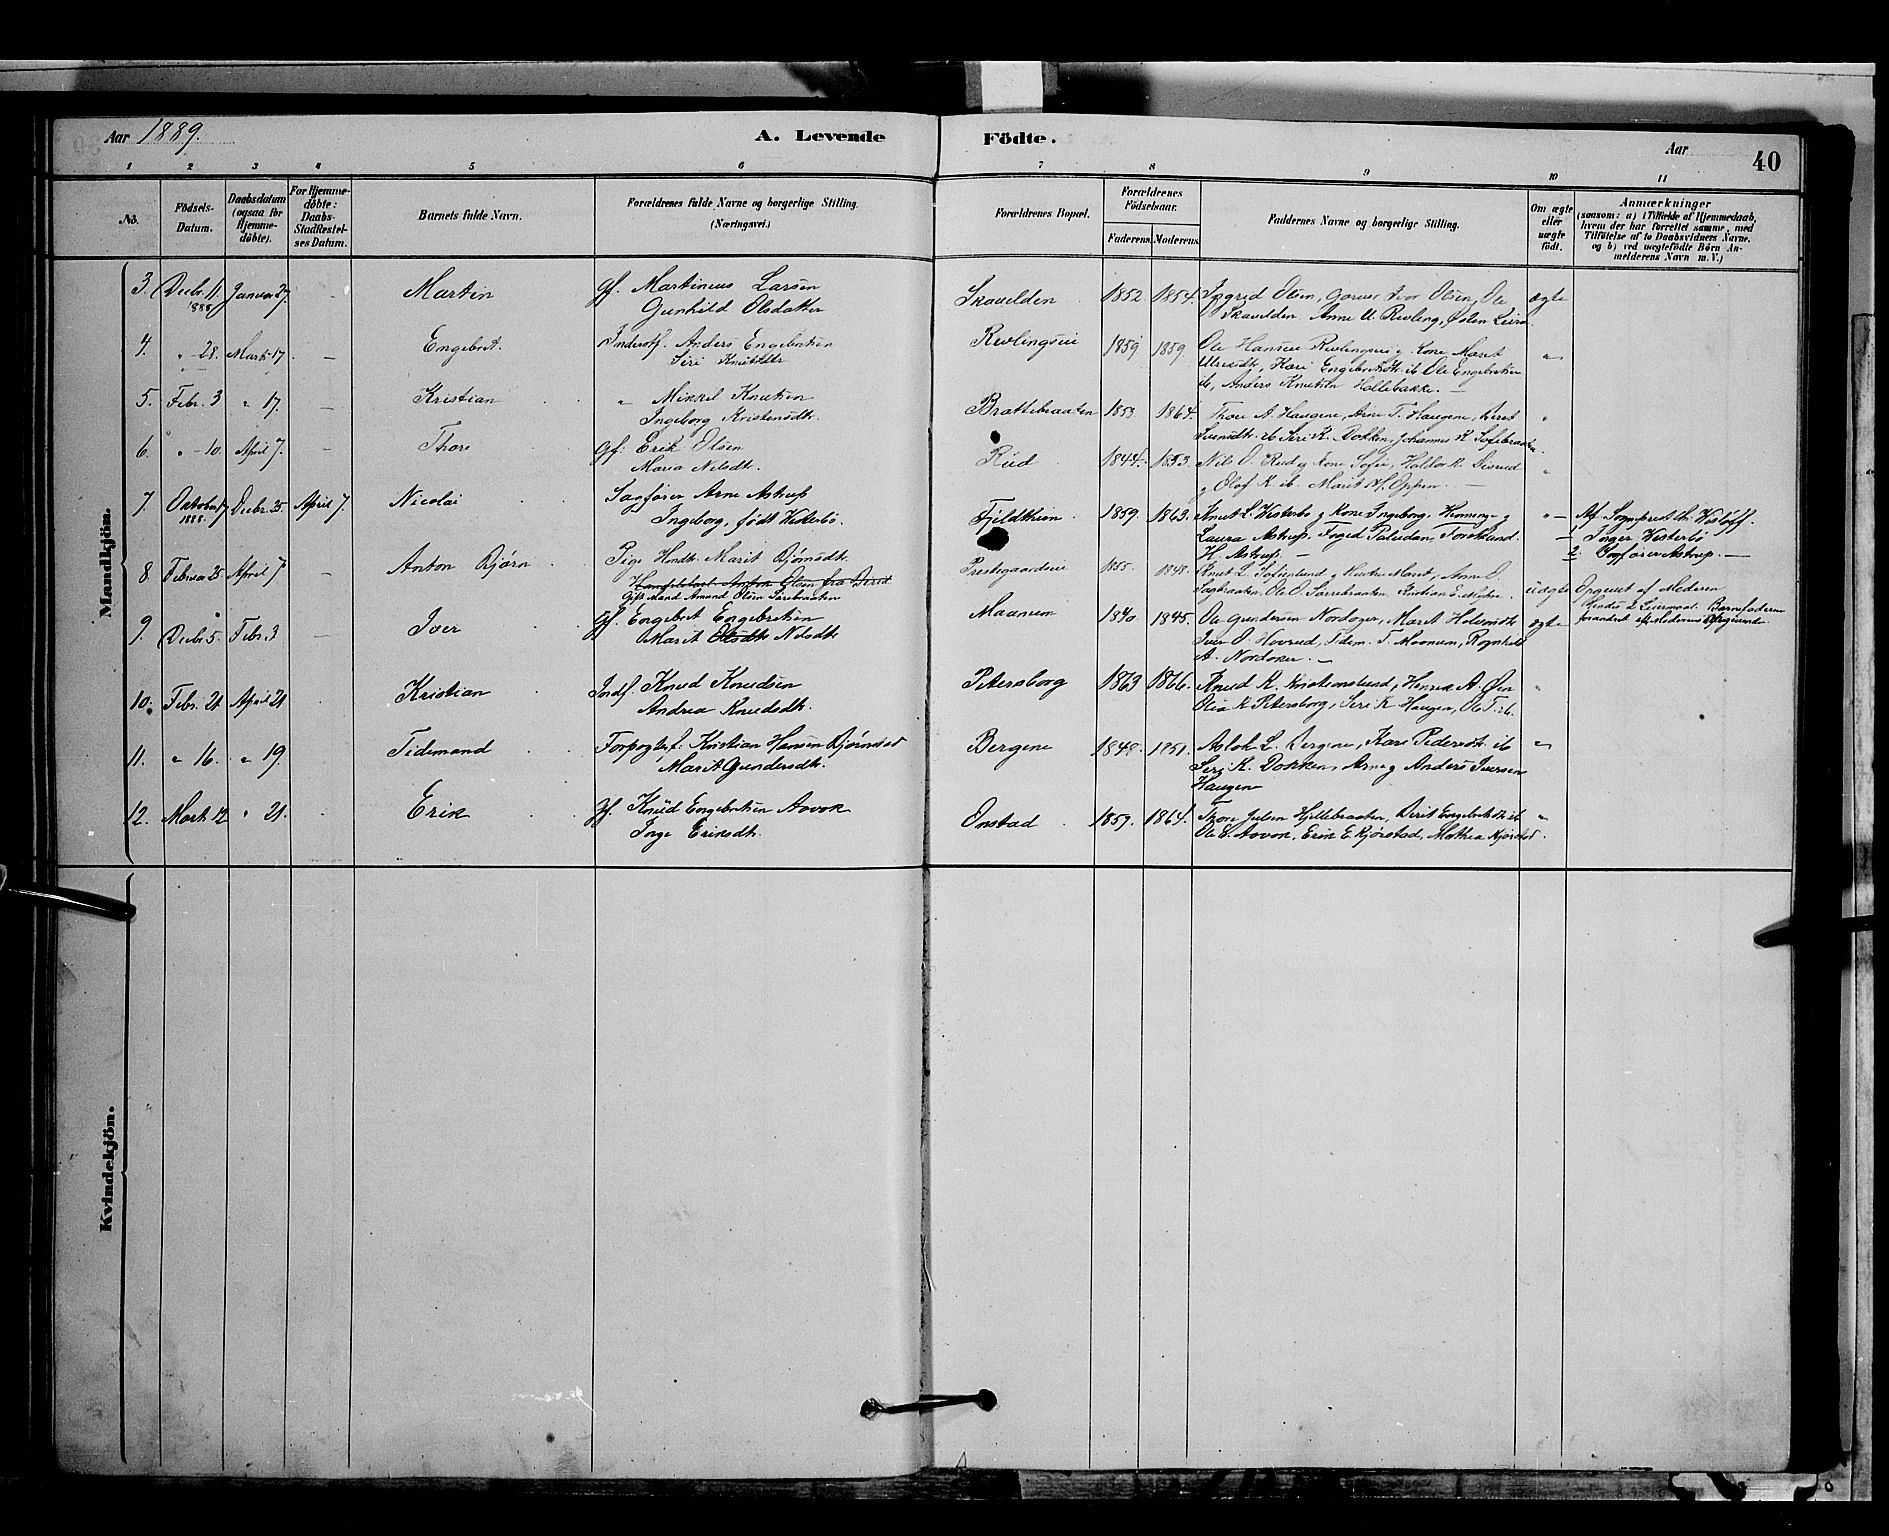 Aar 1889.
A. Levende Födte.
Aar
40
1 2 3 4 5 6 7 8 9 10 11
No.
Födsels-Datum.
Daabsdatum (ogsaa for Hjemmedöbte).
For Hjemmedöbte: Daabs-Stadfestelses Datum.
Barnets fulde Navn.
Forældrenes fulde Navne og borgerlige Stilling.
(Næringsvei.)
Forældrenes Bopæl.
Forældrenes Födselsaar.
Faderens. Moderens.
Faddernes Navne og borgerlige Stilling.
Om ægte eller uægte födt.
Anmærkninger
(saasom: a) i Tilfælde af Hjemmedaab,
hvem der har forrettet samme, med
Tilföielse af to Daabsvidners Navne,
og b) ved uægtefödte Börn Anmelderens Navn m. V.)
Mandkjön.
3. Decbr. 11. 1888 Januar 27. - Martin Gf. Martinius Larsen
Gunhild Olsdatter
Skavelden 1852 1854. Ingrid Olsen, Iver Olsen, Ole
Skavelden Anne U. Revling, Østen
ægte
4. " - 28. Marts 17. - Engebret. Inderstf. Anders Engebretsen
Siri Knutsdtr
Revlingseie 1859 1859. Ole Hansen Revlingseie g. Kone Marit
Ulriksdt., Kari Engebretsdt. ib Ole Engebretsen
ib, Anders Knutsen Hollebakke. -
"
5. Febr. 3 " 17. - Kristian " Mikkel Knutsen
Ingeborg Kristensdt.
Brattebraaten 1853 1864. Thore A. Haugene, Arne T. Haugene, Beret
Svensdt. ib Siri K. Dokken, Johannes K. Sofiebraaten
"
6. " - 10. April 7. - Thore Gf: Erik Olsen
Maria Nilsdt.
Rud 1844. 1853. Nils O. Rud g Kone Sofie, Haldor K.
g Olof K. ib. Marit H. Oppen. -
"
7 Oktober 17 1888. Decbr. 25 April 7. Nicolai Sagfører Arne Astrup
Ingeborg, født Westerbø.
Fjeldheim 1859. 1863. Knut L. Westerbø g Kone Ingeborg, Henninge g
Laura Astrup, Foged Paludan, Forstkand.
H. Astrup. -
" - Af Sogneprest Chr. Wisløff.
1 Inger Westerbø
2 Sagfører Astrup. -
8. Februar 25 April 7 - Anton Bjørn Pige Marit Bjørnsdt.
Anton Olsen fra
Gift Mand Amund Olsen Sørebraaten
Prestegaardseie 1855. 1848. Knut L. Sofielund g Hustru Marit, Anne O.
Sagbraaten, Ole O. Sørrebraaten, Kristian E.
uægte Opgivet af Moderen
Barnefaderen
forandret efter Moderens Opgivende.
9. Decbr. 5. Febr. 3 - Iver Gf. Engebret Engebretsen
Marit Olsdt. Nilsdt.
Maanum 1840 1845. Ole Gundersen Nordager, Marit Halvorsdt.
Iver O. Hovrud, Tidem. T. Maanum, Ragnhild
A. Nordaker. -
ægte
10. Febr. 21 April 21 Kristian Indf. Knud Knudsen
Andrea Knudsdt.
Petersborg 1863 1866. Knud K. Kristianslund, Henrik A. Øen
Olia K Petersborg, Siri K Haugen, Ole T. ib.
"
11. " 16. " 19. Tidemand Forpagterf: Kristian Hansen Bjørnstad
Marit Gundersdt.
Bergene 1848. 1851. Aslak L. Bergene, Kari Pedersdt. ib
Siri K. Dokken, Arne g Anders Iversen
Haugene
"
12. Marts 12 " 21. Erik Gf. Knud Engebretsen Aavok
Inge Eriksdt.
Onstad 1859. 1864. Thore Julsen Hjellebraaten, Birit Engebretsdt. ib
Ole E. Aavok, Erik E. Kjørstad, Mathea Kjørstad.
"
Kvindekjön.